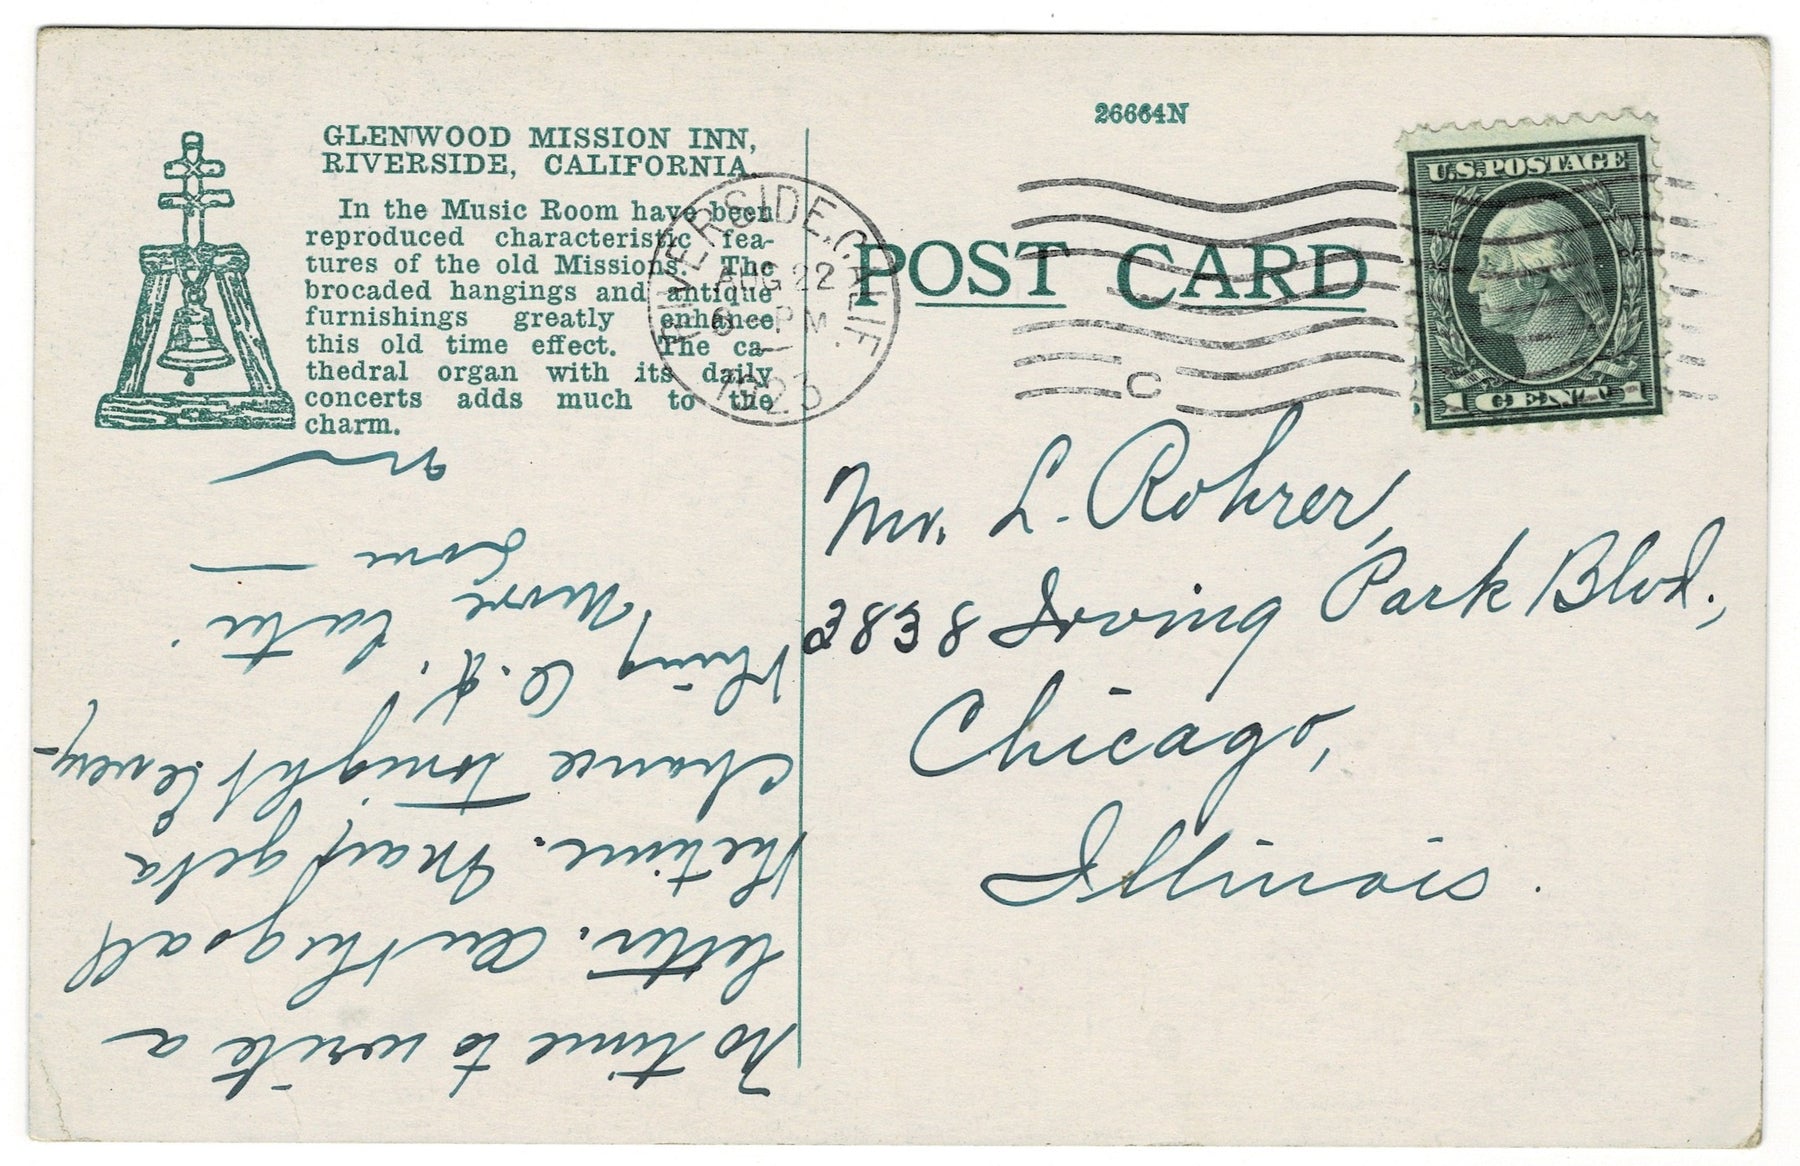 26664N
GLENWOOD MISSION INN,
RIVERSIDE, CALIFORNIA.
In the Music Room have been
reproduced characteristic fea-
tures of the old Missions. The
brocaded hangings and antique
furnishings greatly enhance
this old time effect. The ca-
thedral organ with its daily
concerts adds much to the
charm.
RIVERSIDE, CALIF.
AUG 22
PM
1923
C
POST CARD
U.S. POSTAGE
1 CENT 1
Mr. L. Rohrer,
3838 Irving Park Blvd.,
Chicago,
Illinois.
No time to write a
letter. On the go all
the time. May get a
chance tonight. Every-
thing O.K.
More later
Love